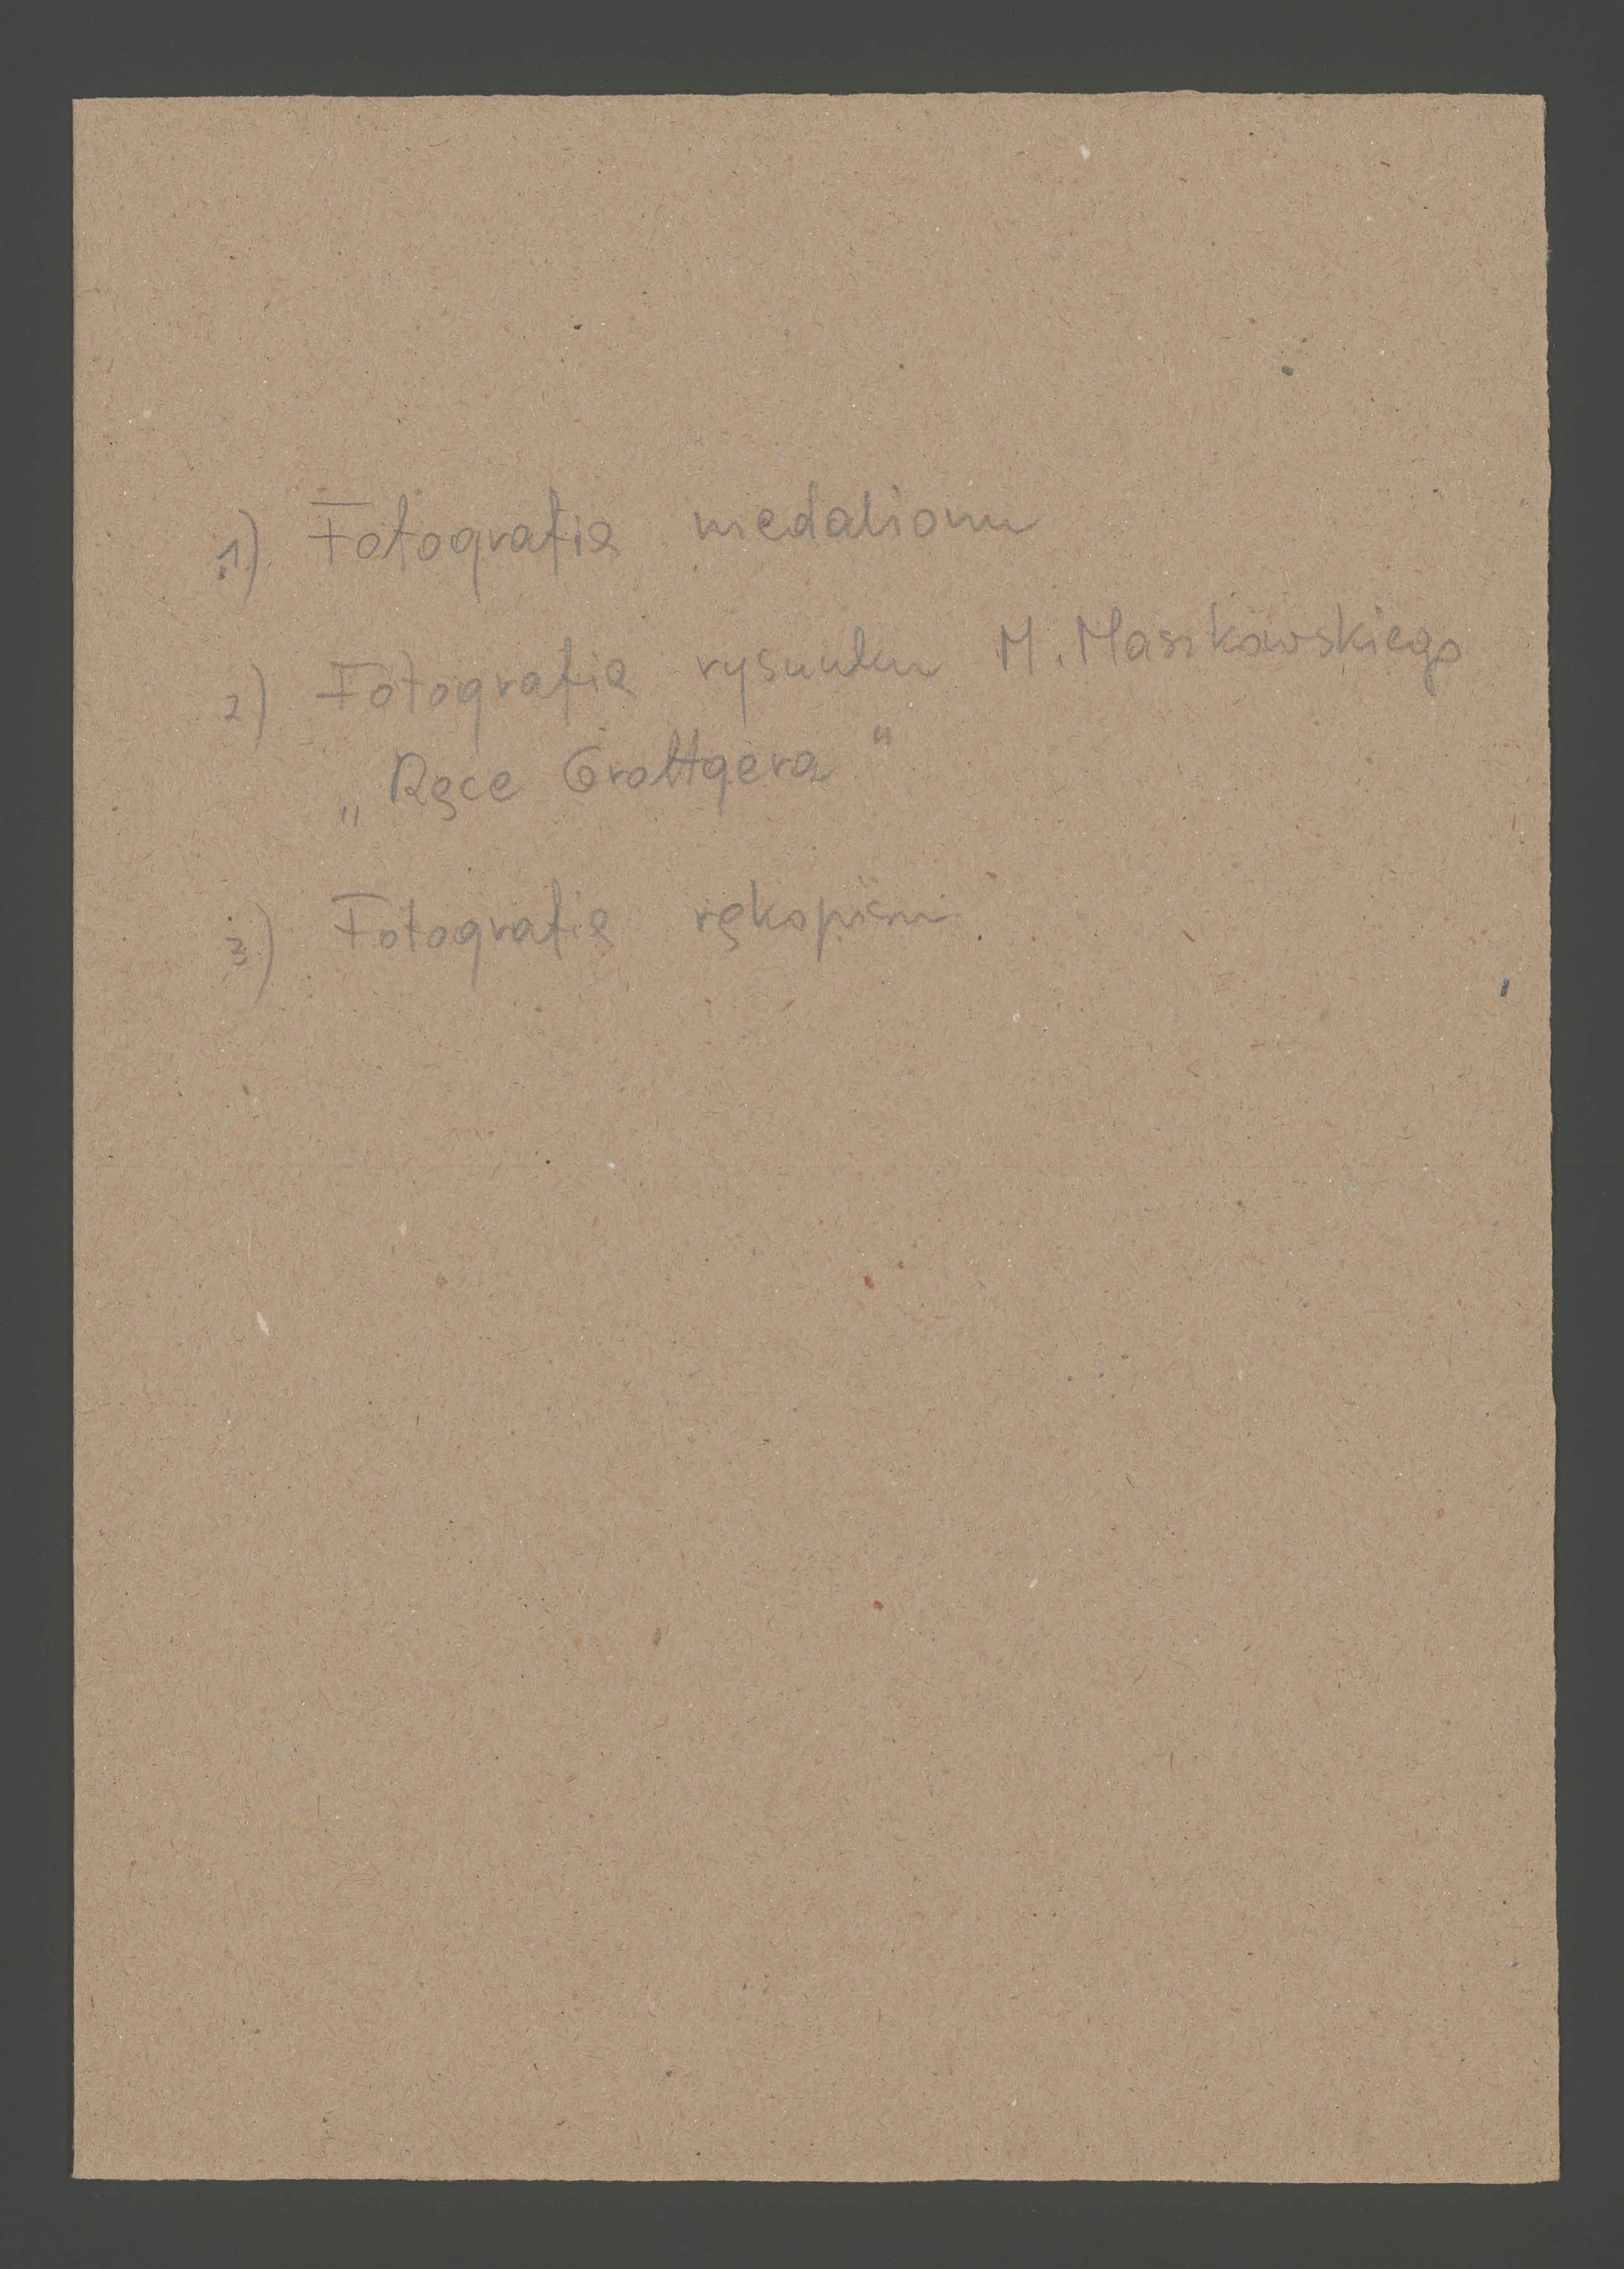 1) Fotografia medalionu
2) Fotografia rysunku M. Maszkowskiego
„Ręce Grottgera"
3) Fotografia rękopisu